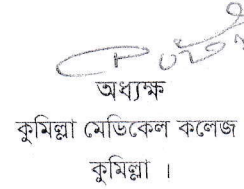 অধ্যক্ষ
কুমিল্লা মেডিকেল কলেজ
কুমিল্লা ।